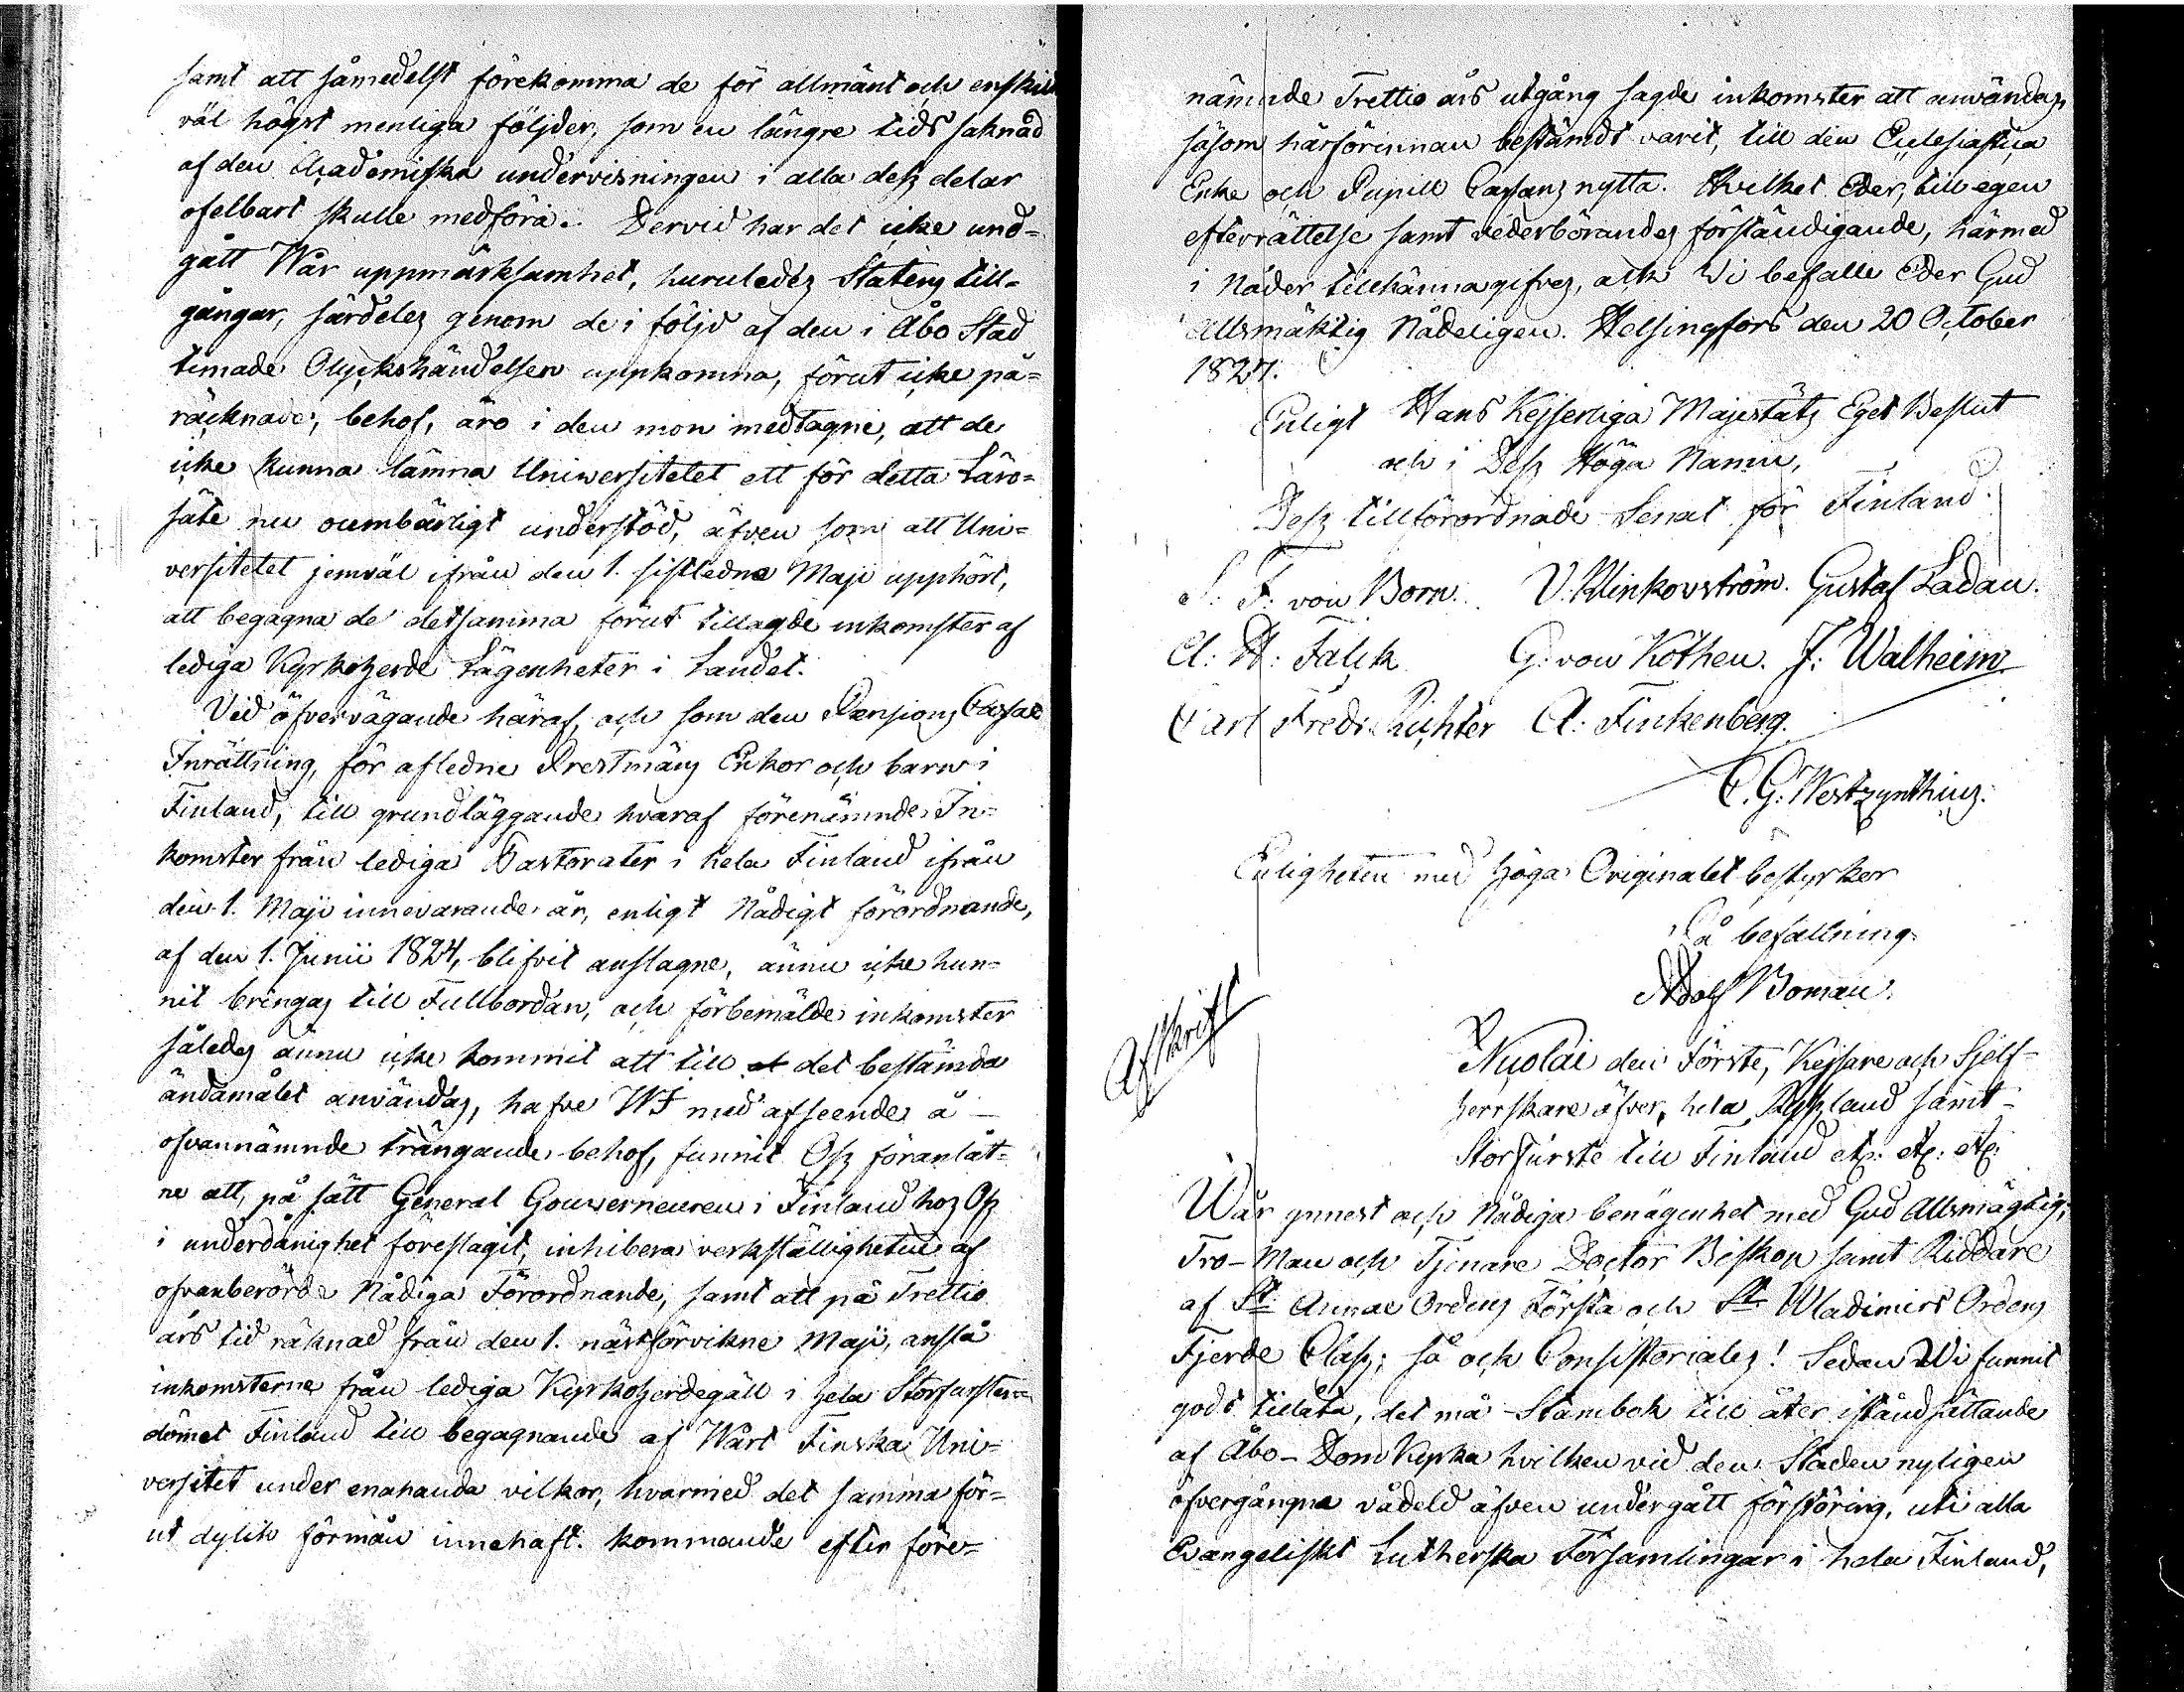 samt att såmedelst förekomma de för allmänt och enskildt
väl högst menliga följder, som en längre tids saknad
af den Academiska undervisningen i alla dess delar
ofelbart skulle medföra. Dervid har det icke und-
gått Wår uppmärksamhet, huruledes Statens till-
gångar, särdeles genom de i följd af den i Åbo Stad
timade Olyckshändelsen uppkomna, förut icke på-
räcknade, behof, äro i den mon medtagne, att de
icke kunna lämna Universitetet ett för detta Läro-
säte nu oumbärligt understöd, äfven som att Uni-
versitetet jemväl ifrån den 1. sistledne Maji upphört,
att begagna de detsamma förut tillagde inkomster af
lediga Kyrkoherde Lägenheter i Landet.
Vid öfvervägande häraf, och som den Pensions Cassae
Inrättning, för afledne Prestmäns Enkor och barn i
Finland, till grundläggande hvaraf förenämnde In-
komster från lediga Pastorater i hela Finland ifrån
den 1. Maji innevarande år, enligt Nådigt förordnande,
af den 1. Junii 1824, blifvit anslagne, ännu icke hun-
nit bringas till Fullbordan, och förbemälde inkomster
således ännu icke kommit att till det bestämda
ändamålet användas, hafve WI med afseende å
ofvannämnde trängande behof, funnit Oss föranlåt-
ne att, på sätt General Gouverneuren i Finland hos Oss
i underdånighet föreslagit, inhibera verkställigheten af
ofvanberörde Nådiga Förordnande, samt att på Trettio
års tid räknad från den 1. nästförvikne Maji, anslå
inkomsterne från lediga Kyrkoherdegäll i hela Storfursten-
dömet Finland till begagnande af Wårt Finska Uni-
versitet under enahanda vilkor, hvarmed det samma för-
ut dylik förmån innehaft. kommande efter före-
nämnde Trettio års utgång sagde inkomster att användas,
såsom härförinnan bestämdt varit, till den Ecclesiastica
Enke och Pupill Cassans nytta. Hvilket Eder, till egen
efterrättelse samt vederbörandes förständigande, härmed
i Nåder tillkännagifves, och Vi befalle Eder Gud
Allsmäktig Nådeligen. Helsingfors den 20 October
1827.
Enligt Hans Kejserliga Majestäts Eget Beslut
och i Dess Höga Namn,
Dess tillförordnade Senat för Finland.
S: F: von Born. V: Klinkovström. Gustaf Ladau.
A: H: Falck G: von Kothen. J: Walheim
Carl Fredr. Richter A: Finkenberg.
C. G: Westzynthius.
Enligheten med höga Originalet bestyrker
På befallning.
Adolf Boman.
Afskrift
Nicolai den Förste, Kejsare och Sjelf-
herrskare öfver hela Ryssland samt
Storfurste till Finland etc: etc: etc:
Wår ynnest och Nådiga benägenhet med Gud Allsmägtig,
Tro-Man och Tjenare Doctor Biskop samt Riddare
af St: Annae Ordens Första och St: Wladimirs Ordens
Fjerde Class; så och Consistoriales! Sedan Wi funnit
godt tillåta, det må Stambok till åter iståndsättande
af Åbo-Dom Kyrka hvilken vid den Staden nyligen
öfvergångna vådeld äfven undergått förstöring, uti alla
Evangeliskt Lutherska Församlingar i hela Finland,